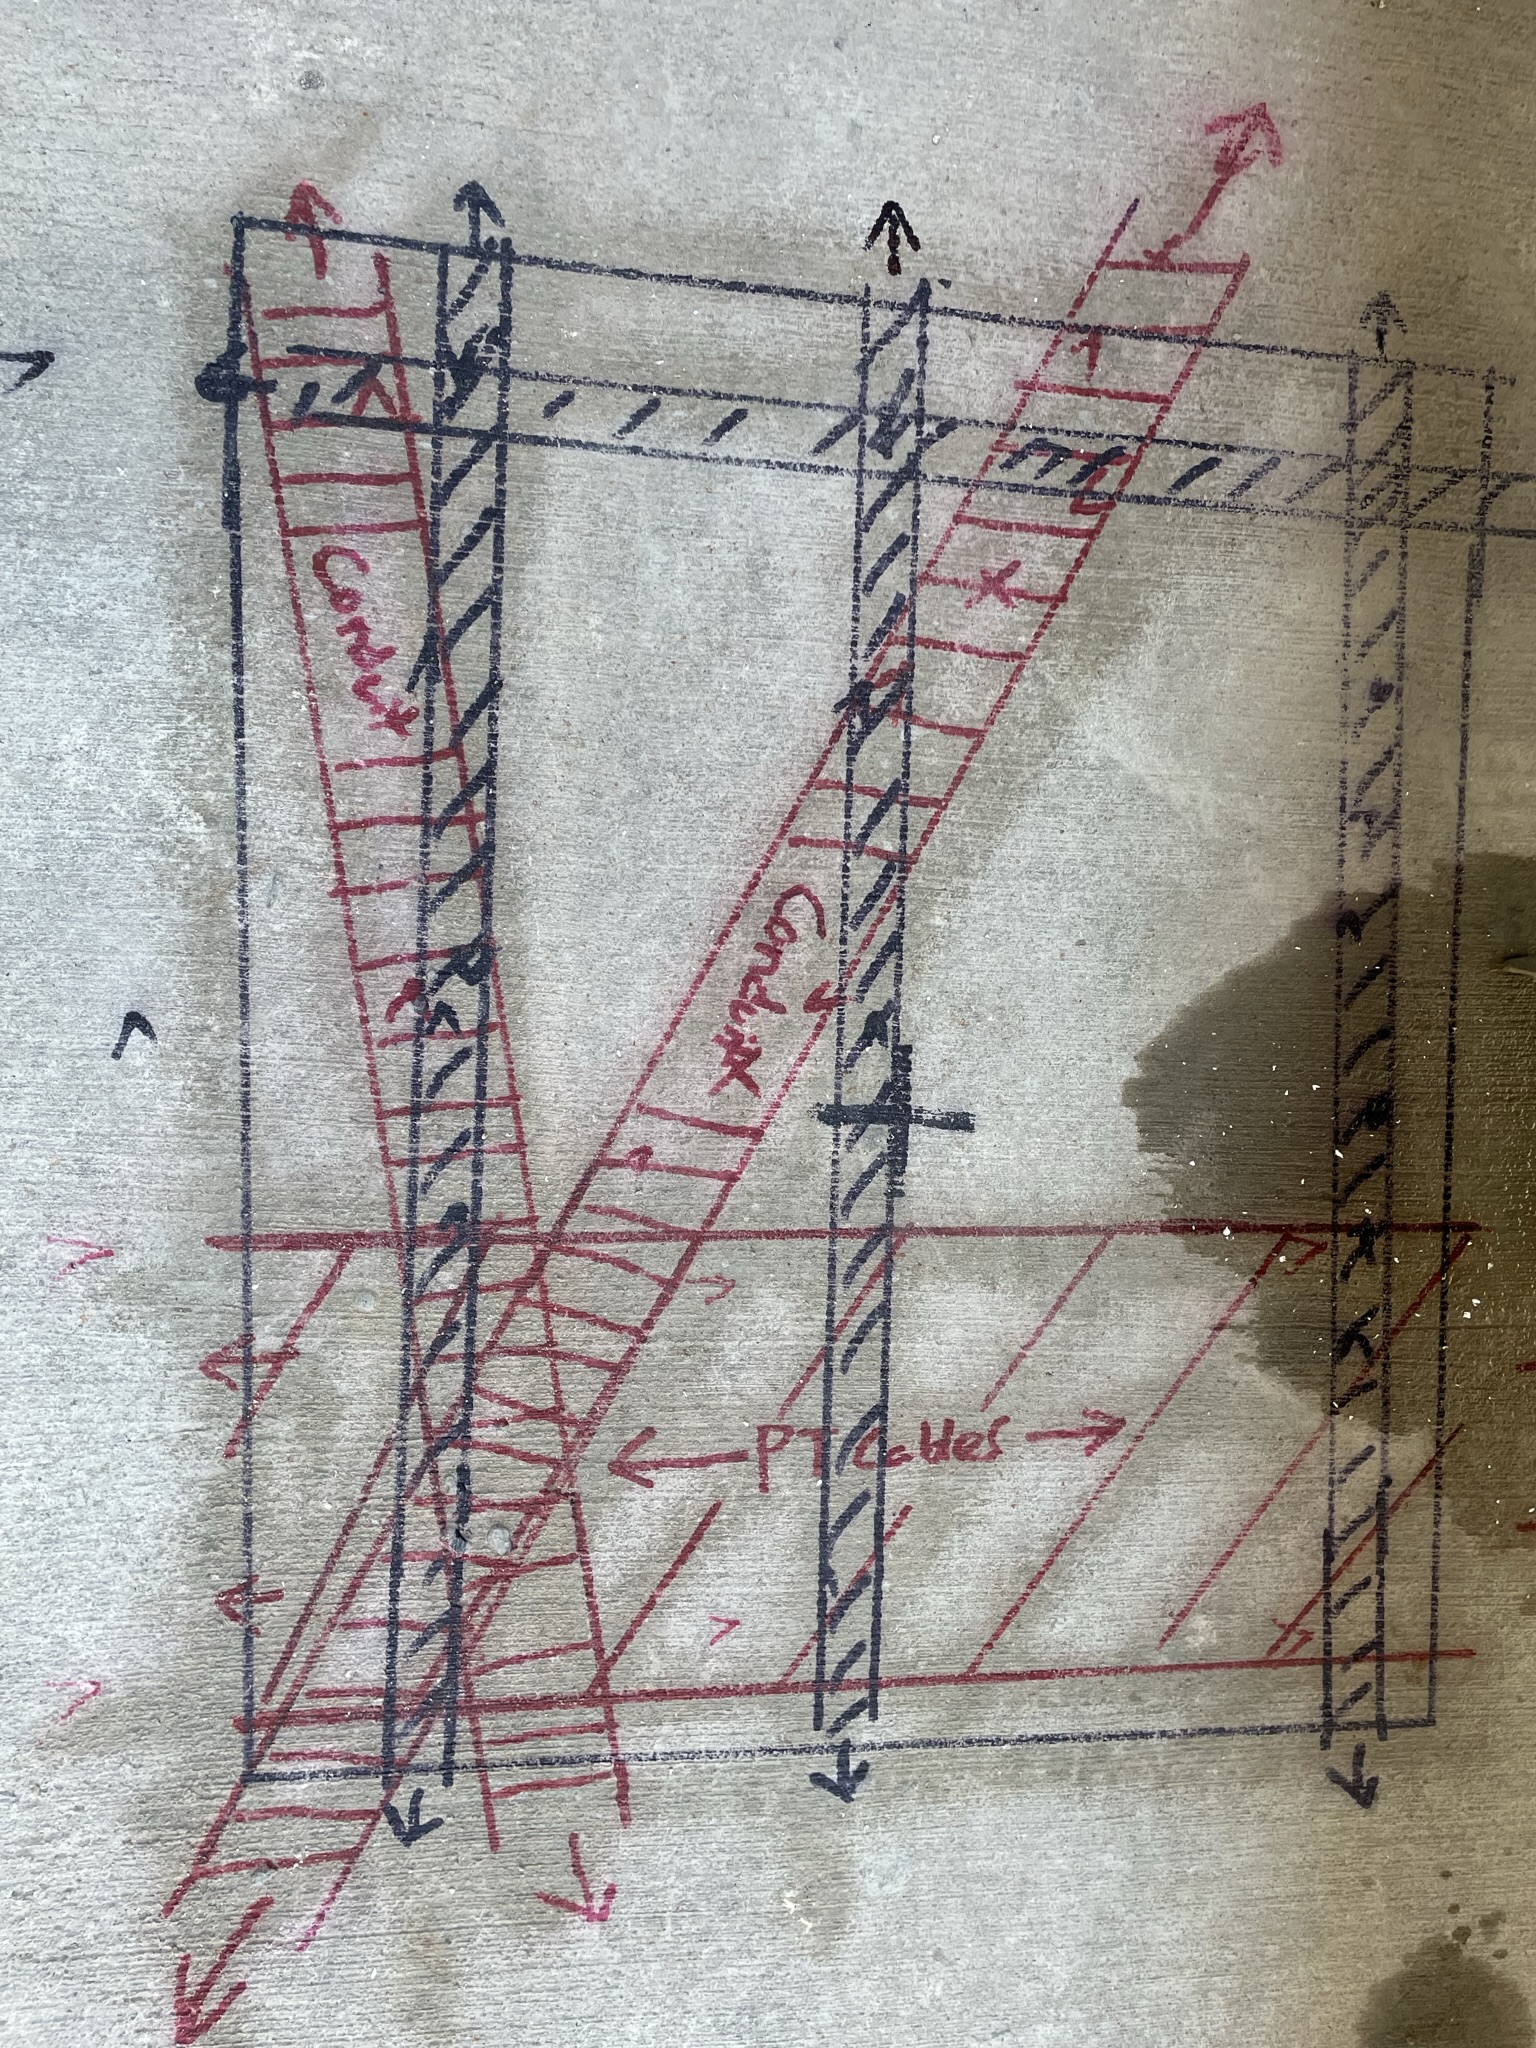 Conduit
Conduit
PT Cables